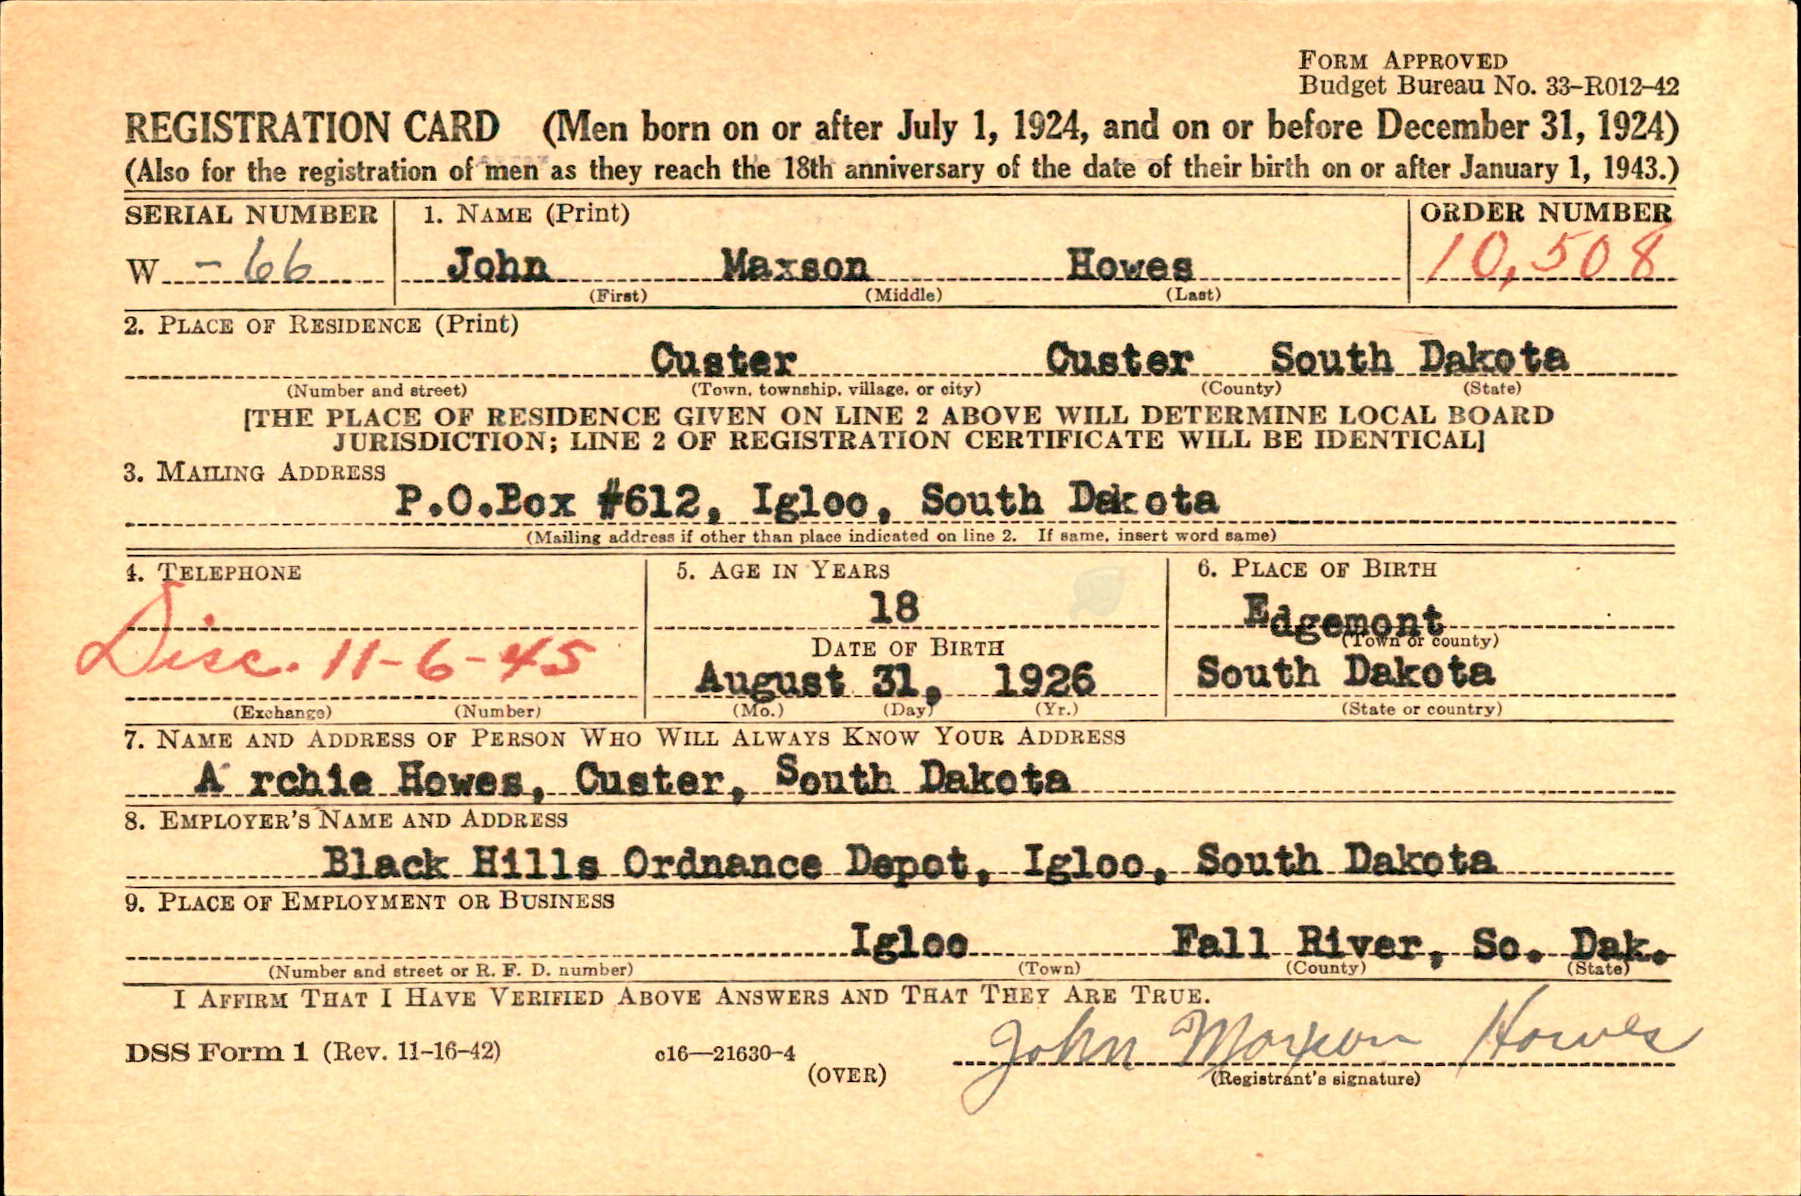 FORM APPROVED
Budget Bureau No. 33-R012-42
REGISTRATION CARD (Men born on or after July 1, 1924, and on or before December 31, 1924)
(Also for the registration of men as they reach the 18th anniversary of the date of their birth on or after January 1, 1943.)
SERIAL NUMBER 1. NAME (Print) ORDER NUMBER
W - 66 John Maxson Howes 10,508
(First) (Middle) (Last)
2. PLACE OF RESIDENCE (Print)
Custer Custer South Dakota
(Number and street) (Town, township, village, or city) (County) (State)
[THE PLACE OF RESIDENCE GIVEN ON LINE 2 ABOVE WILL DETERMINE LOCAL BOARD
JURISDICTION; LINE 2 OF REGISTRATION CERTIFICATE WILL BE IDENTICAL]
3. MAILING ADDRESS
P.O.Box #612, Igloo, South Dakota
(Mailing address if other than place indicated on line 2. If same, insert word same)
4. TELEPHONE 5. AGE IN YEARS 6. PLACE OF BIRTH
18 Edgemont
DATE OF BIRTH (Town or county)
Disc. 11-6-45 August 31, 1926 South Dakota
(Exchange) (Number) (Mo.) (Day) (Yr.) (State or country)
7. NAME AND ADDRESS OF PERSON WHO WILL ALWAYS KNOW YOUR ADDRESS
A rchie Howes, Custer, South Dakota
8. EMPLOYER'S NAME AND ADDRESS
Black Hills Ordnance Depot, Igloo, South Dakota
9. PLACE OF EMPLOYMENT OR BUSINESS
Igloo Fall River, So. Dak.
(Number and street or R. F. D. number) (Town) (County) (State)
I AFFIRM THAT I HAVE VERIFIED ABOVE ANSWERS AND THAT THEY ARE TRUE.
DSS Form 1 (Rev. 11-16-42) c16—21630-4 John Maxson Howes
(OVER) (Registrant's signature)